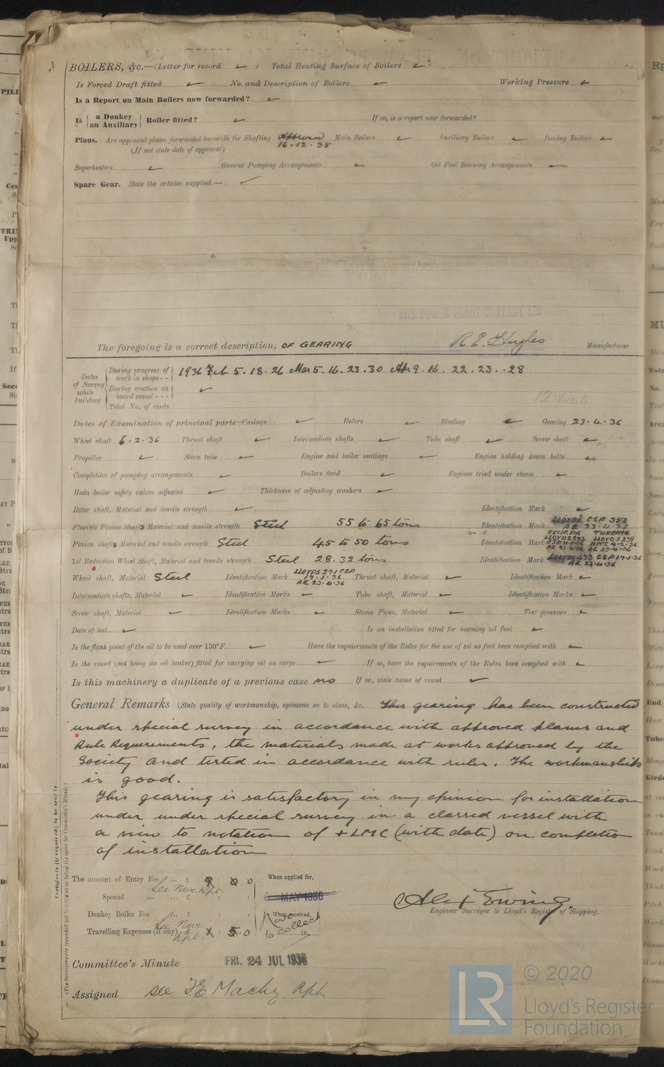 BOILERS, &c.—(Letter for record ✓ ) Total Heating Surface of Boilers ✓
Is Forced Draft fitted ✓ No. and Description of Boilers ✓ Working Pressure ✓
Is a Report on Main Boilers now forwarded? ✓
Is { a Donkey / an Auxiliary } Boiler fitted? ✓ If so, is a report now forwarded?
Plans. Are approved plans forwarded herewith for Shafting Approved Main Boilers ✓ Auxiliary Boilers ✓ Donkey Boilers ✓
(If not state date of approval) 16.12.35
Superheaters ✓ General Pumping Arrangements ✓ Oil Fuel Burning Arrangements ✓
Spare Gear. State the articles supplied— ✓
THE POWER PLANT COMPANY LTD
The foregoing is a correct description, OF GEARING R.E. Hughes Manufacturer
Dates of Survey while building
During progress of work in shops - - 1936 Feb 5. 18. 26 Mar 5. 16. 23. 30 Apr 9. 16. 22. 23. 28
During erection on board vessel - - - ✓
Total No. of visits 12 Visits
Dates of Examination of principal parts—Casings ✓ Rotors ✓ Blading ✓ Gearing 23.4.36
Wheel shaft 6.2.36 Thrust shaft ✓ Intermediate shafts ✓ Tube shaft ✓ Screw shaft ✓
Propeller ✓ Stern tube ✓ Engine and boiler seatings ✓ Engine holding down bolts ✓
Completion of pumping arrangements ✓ Boilers fixed ✓ Engines tried under steam ✓
Main boiler safety valves adjusted ✓ Thickness of adjusting washers ✓
Rotor shaft, Material and tensile strength ✓ Identification Mark ✓
Flexible Pinion Shaft, Material and tensile strength Steel 55 to 65 tons Identification Mark
Pinion shafts, Material and tensile strength Steel 45 to 50 tons Identification Mark
1st Reduction Wheel Shaft, Material and tensile strength Steel 28.32 tons Identification Mark
Wheel shaft, Material Steel Identification Mark Thrust shaft, Material ✓ Identification Mark ✓
Intermediate shafts, Material ✓ Identification Marks ✓ Tube shaft, Material ✓ Identification Marks ✓
Screw shaft, Material ✓ Identification Marks ✓ Steam Pipes, Material ✓ Test pressure ✓
Date of test ✓ Is an installation fitted for burning oil fuel ✓
Is the flash point of the oil to be used over 150°F. ✓ Have the requirements of the Rules for the use of oil as fuel been complied with ✓
Is the vessel (not being an oil tanker) fitted for carrying oil as cargo ✓ If so, have the requirements of the Rules been complied with ✓
Is this machinery a duplicate of a previous case no If so, state name of vessel ✓
General Remarks (State quality of workmanship, opinions as to class, &c. This gearing has been constructed
under special survey in accordance with approved plans and
Rule Requirements, the materials made at works approved by the
Society and tested in accordance with rules. The workmanship
is good.
This gearing is satisfactory in my opinion for installation
under under special survey in a classed vessel with
a view to notation of +LMC (with date) on completion
of installation
The amount of Entry Fee ... £ When applied for,
See New Rpt
Special ... £ MAY 1936
Donkey Boiler Fee ... £ When received,
Travelling Expenses (if any) £
Alex Ewing
Engineer Surveyor to Lloyd's Register of Shipping.
Committee's Minute FRI. 24 JUL 1936
Assigned see FE Machy. Rpt.
© 2020
LR
Lloyd's Register
Foundation